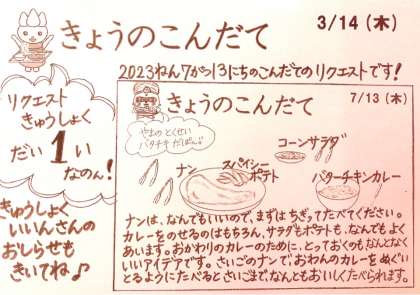 きょうのこんだて
3/14(木)
2023ねん7がつ13にちのこんだてのリクエストです!
リクエスト
きゅうしょく
だい1い
なのん!
きゅうしょく
いいんさんの
おしらせも
きいてね♪
きょうのこんだて
7/13(木)
やまの とくせい
バタチキ だぱん♪
コーンサラダ
ナン
スパイシー
ポテト
バターチキンカレー
ナンは、なんでもいいので、まずはちぎってたべてください。
カレーをのせるのはもちろん、サラダもポテトも、なんでもよく
あいます。おかわりのカレーのために、とっておくのもなんとなく
いいアイデアです。さいごのナンで、おわんのカレーをぬぐい
とるようにたべるとさいごまで、なんともおいしくたべられます。